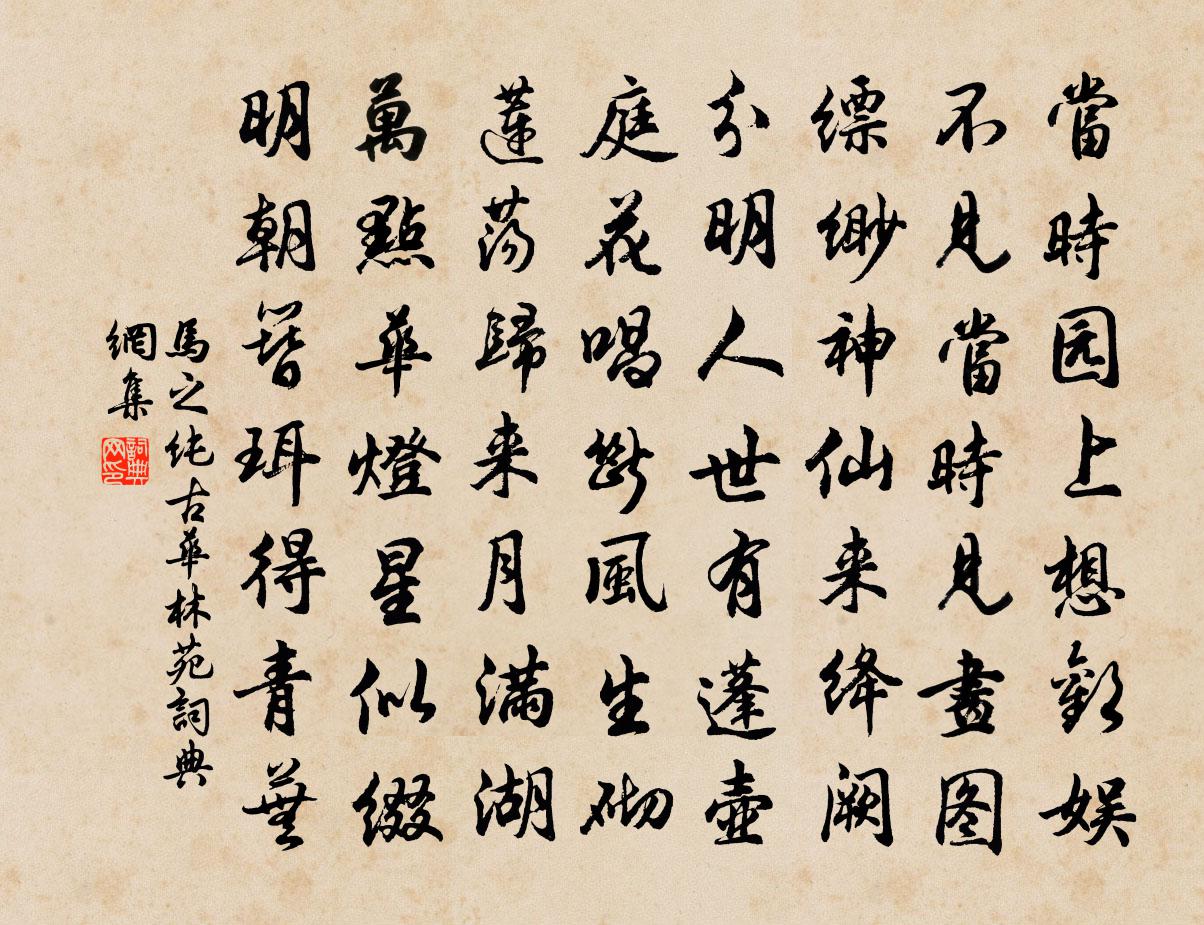 當時园上想歡娱
不見當時見畫图
縹緲神仙来絳阙
分明人世有蓬壺
庭花唱斷風生砌
蓮荡歸来月满湖
萬點華燈星似綴
明朝簪珥得青蕪
馬之纯古華林苑詞典
網集
詞典
网印